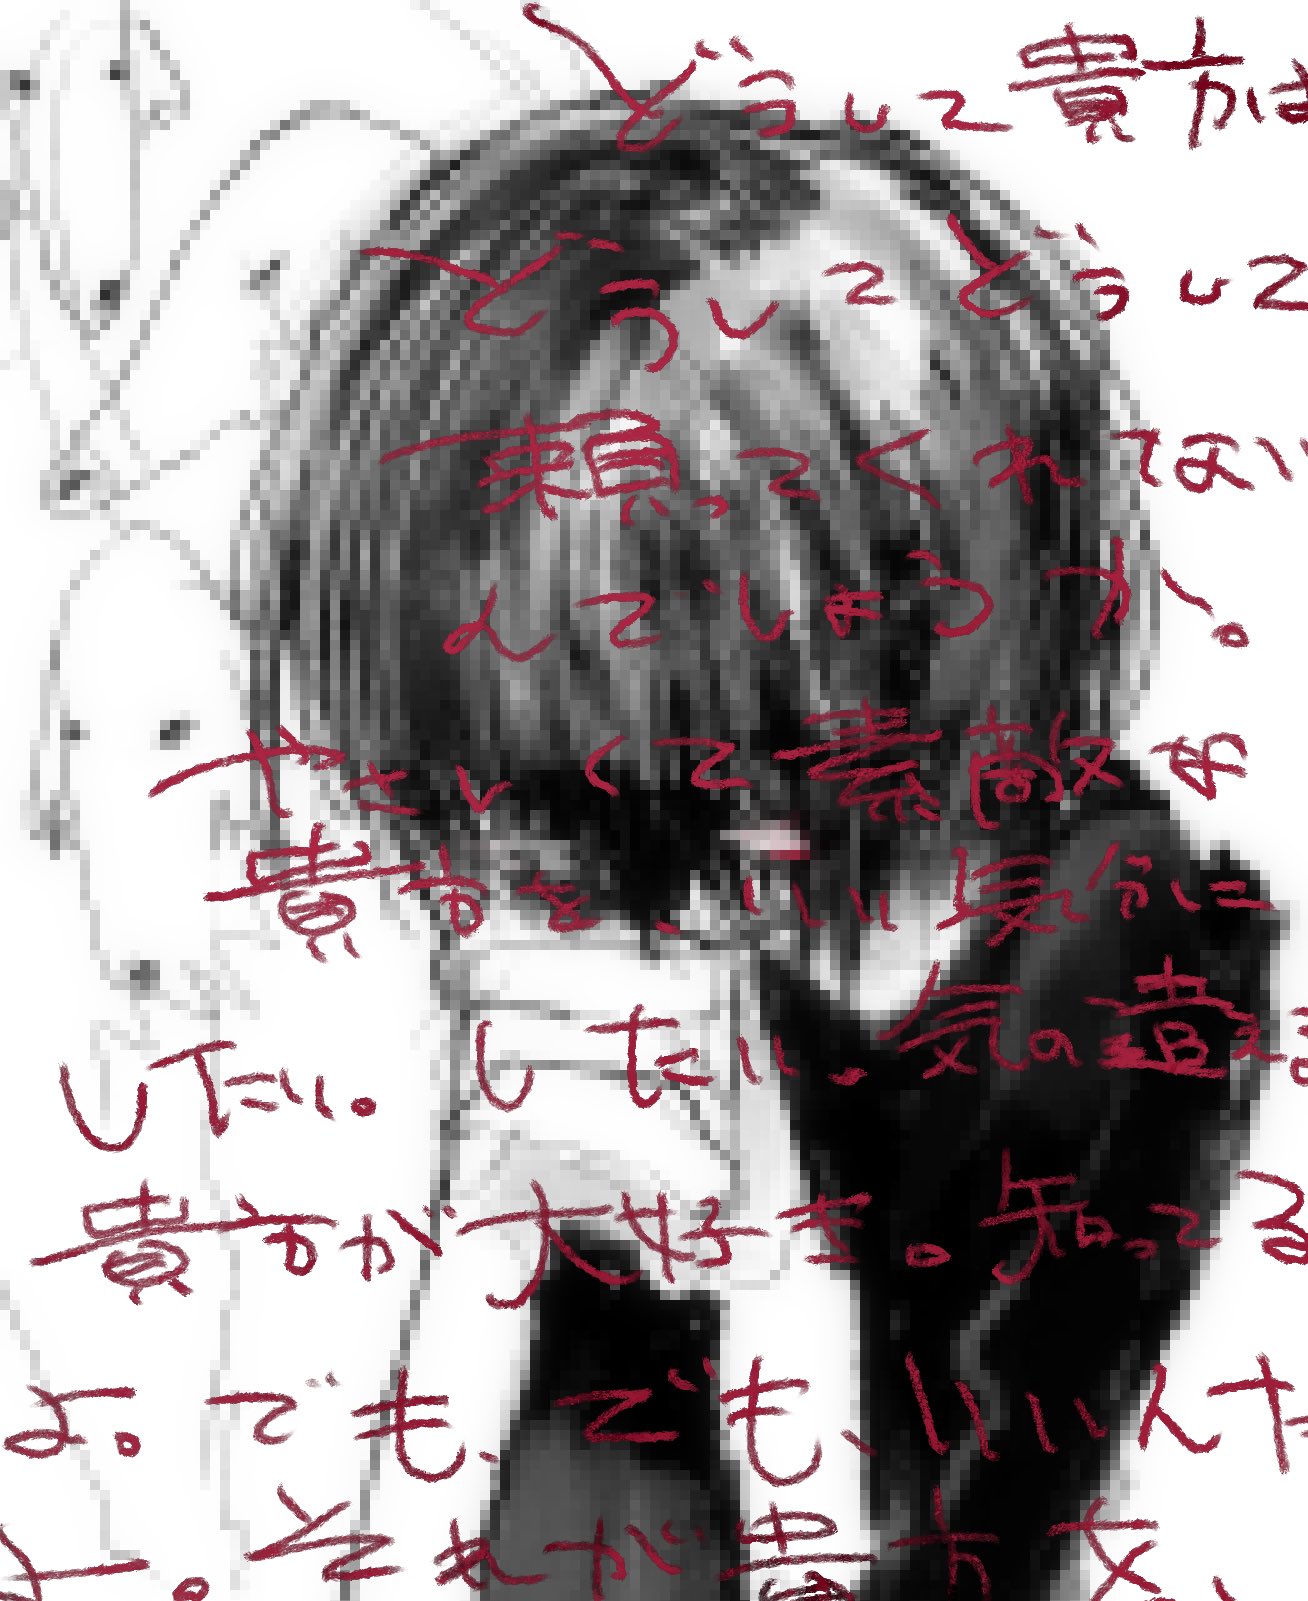 どうして貴方は
どうしてどうして
頼ってくれてない
んでしょうか。
やさしくて素敵な
貴方を、いい気分に
したい。したい。気の遣える
貴方が大好き。知ってる
よ。でも、でも、いいんだ
よ。それが貴方